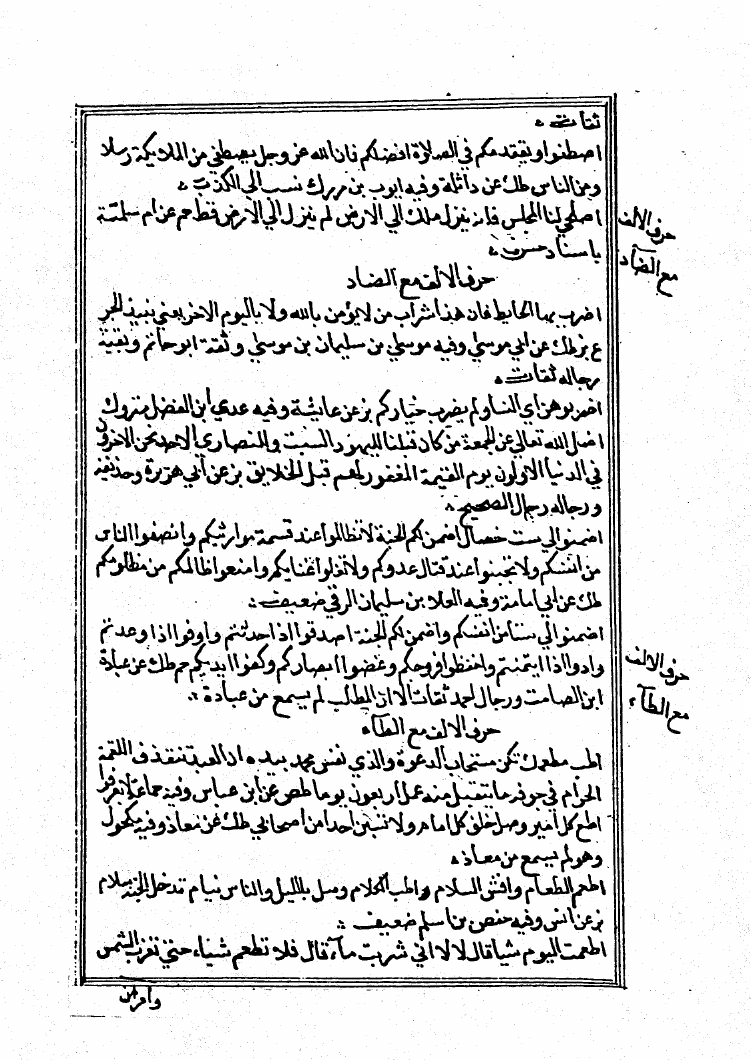 ثقات
اصطفوا وليتقدمكم في الصلاة افضلكم فان الله عز وجل يصطفي من الملايكة رسلا
ومن الناس طك عن واثلة وفيه ايوب بن مدرك نسب الي الكذب
اصلحي لنا المجلس فانه ينزل ملك الي الارض لم ينزل الي الارض قط حم عن ام سلمة
باسناد حسن
حرف الالف مع الضاد
اضرب بهذا الحايط فان هذا شراب من لا يؤمن بالله ولا باليوم الاخر يعني نبيذ الجر
ع بز طك عن ابي موسي وفيه موسي بن سليمان بن موسي وثقه ابو حاتم وبقية
رجاله ثقات
اضربوهن اي النسا ولم يضرب خياركم بز عن عايشة وفيه عدي ابن الفضل متروك
اضل الله تعالي عن الجمعة من كان قبلنا لليهود السبت وللنصاري الاحد نحن الاخرون
في الدنيا الاولون يوم القيمة المغفور لهم قبل الخلايق بز عن أبي هريرة وحذيفة
ورجاله رجال الصحيح
اضمنوا لي ست خصال اضمن لكم الجنة لا تظالموا عند قسمة مواريثكم وانصفوا الناس
من انفسكم ولا تجبنوا عند قتال عدوكم ولا تغلوا غنايمكم وامنعوا ظالمكم من مظلومكم
طك عن ابي امامة وفيه العلا بن سليمان الرقي ضعيف
اضمنوا لي ستا من انفسكم واضمن لكم الجنة اصدقوا اذا حدثتم واوفوا اذا وعدتم
وادوا اذا ايتمنتم واحفظوا فروجكم وغضوا ابصاركم وكفوا ايديكم حم طك عن عبادة
ابن الصامت ورجال احمد ثقات الا ان المطلب لم يسمع من عبادة
حرف الالف مع الطآء
اطب مطعمك تكن مستجاب الدعوة والذي نفس محمد بيده ان العبد ليقذف اللقمة
الحرام في جوفه ما يتقبل منه عمل اربعون يوما طص عن ابن عباس وفيه جماعة لا يعرفوا
اطع كل امير وصل خلف كل امام ولا تسبن احدا من اصحابي طك عن معاذ وفيه مكحول
وهو لم يسمع من معاذ
اطعم الطعام وافش السلام واطب الكلام وصل بالليل والناس نيام تدخل الجنة بسلام
بز عن انس وفيه حفص بن اسلم ضعيف
اطعمت اليوم شيا قال لا الا اني شربت مآء قال فلا تطعم شياء حتي تغرب الشمس
وامر من
حرف الالف
مع الضآد
حرف الالف
مع الطآء